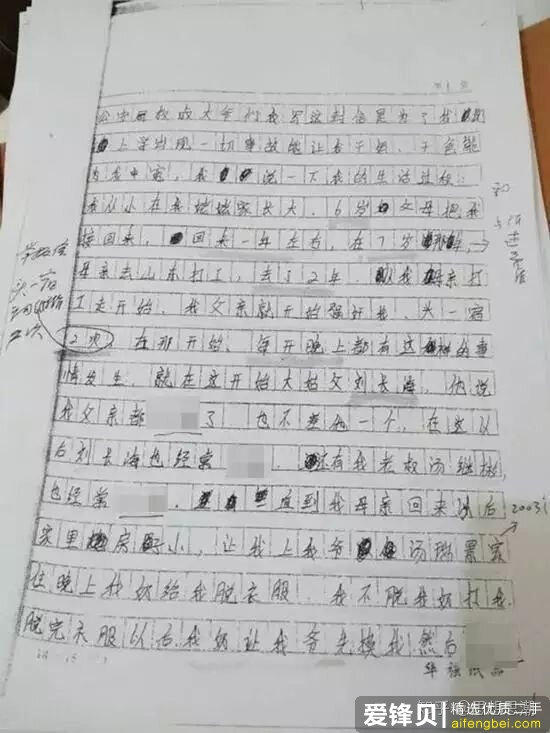 第1页
公安局权成大爷们我写这封信是为了我
上学出现一切事故能让我于姐、于爸能
为我申冤,我说一下我的生活过程:
我从小在我姑姑家长大,6岁父母把我
接回来,回来一年左右,在7岁那年,
母亲去山东打工,去了2年。从我母亲打
工走开始,我父亲就开始强奸我,头一宿
2次,在那开始,每天晚上都有这样的事
情发生,就在这开始大姑父刘长海,他说
我父亲都 了 也不差他一个,在这以
后刘长海也经常 还有我老叔汤继彬,
也经常 一直到我母亲回来以后
家里房小,让我上我爷汤瑞景家
住晚上我奶给我脱衣服,我不脱我奶打我
脱完衣服以后,我奶让我爷先 我然后
头一宿
2次
2003
爱锋贝 精选优质二手
aifengbei.com